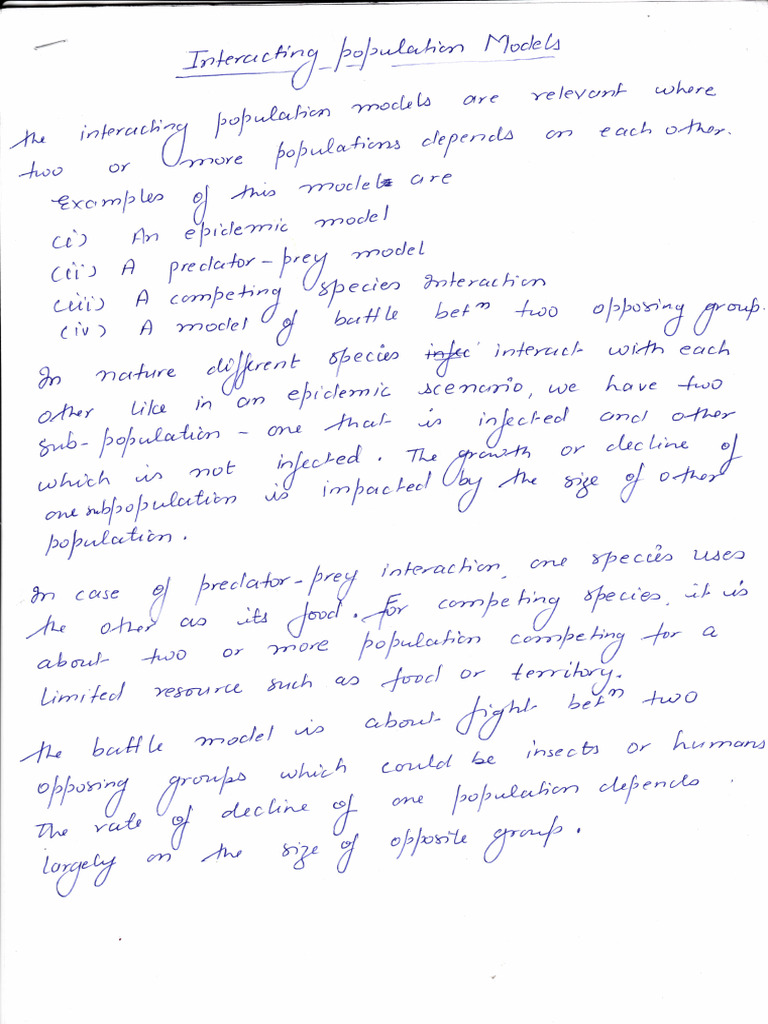 Interacting population Models
The interacting population models are relevant where
two or more populations depends on each other.
Examples of this model are
(i) An epidemic model
(ii) A predator-prey model
(iii) A competing species Interaction
(iv) A model of battle betⁿ two opposing group.
In nature different species infec interact with each
other like in an epidemic scenario, we have two
sub-population - one that is infected and other
which is not infected. The growth or decline of
one subpopulation is impacted by the size of other
population.
In case of predator-prey interaction, one species uses
the other as its food. For competing species, it is
about two or more population competing for a
limited resource such as food or territory.
The battle model is about fight betⁿ two
opposing groups which could be insects or humans
The rate of decline of one population depends.
largely on the size of opposite group.